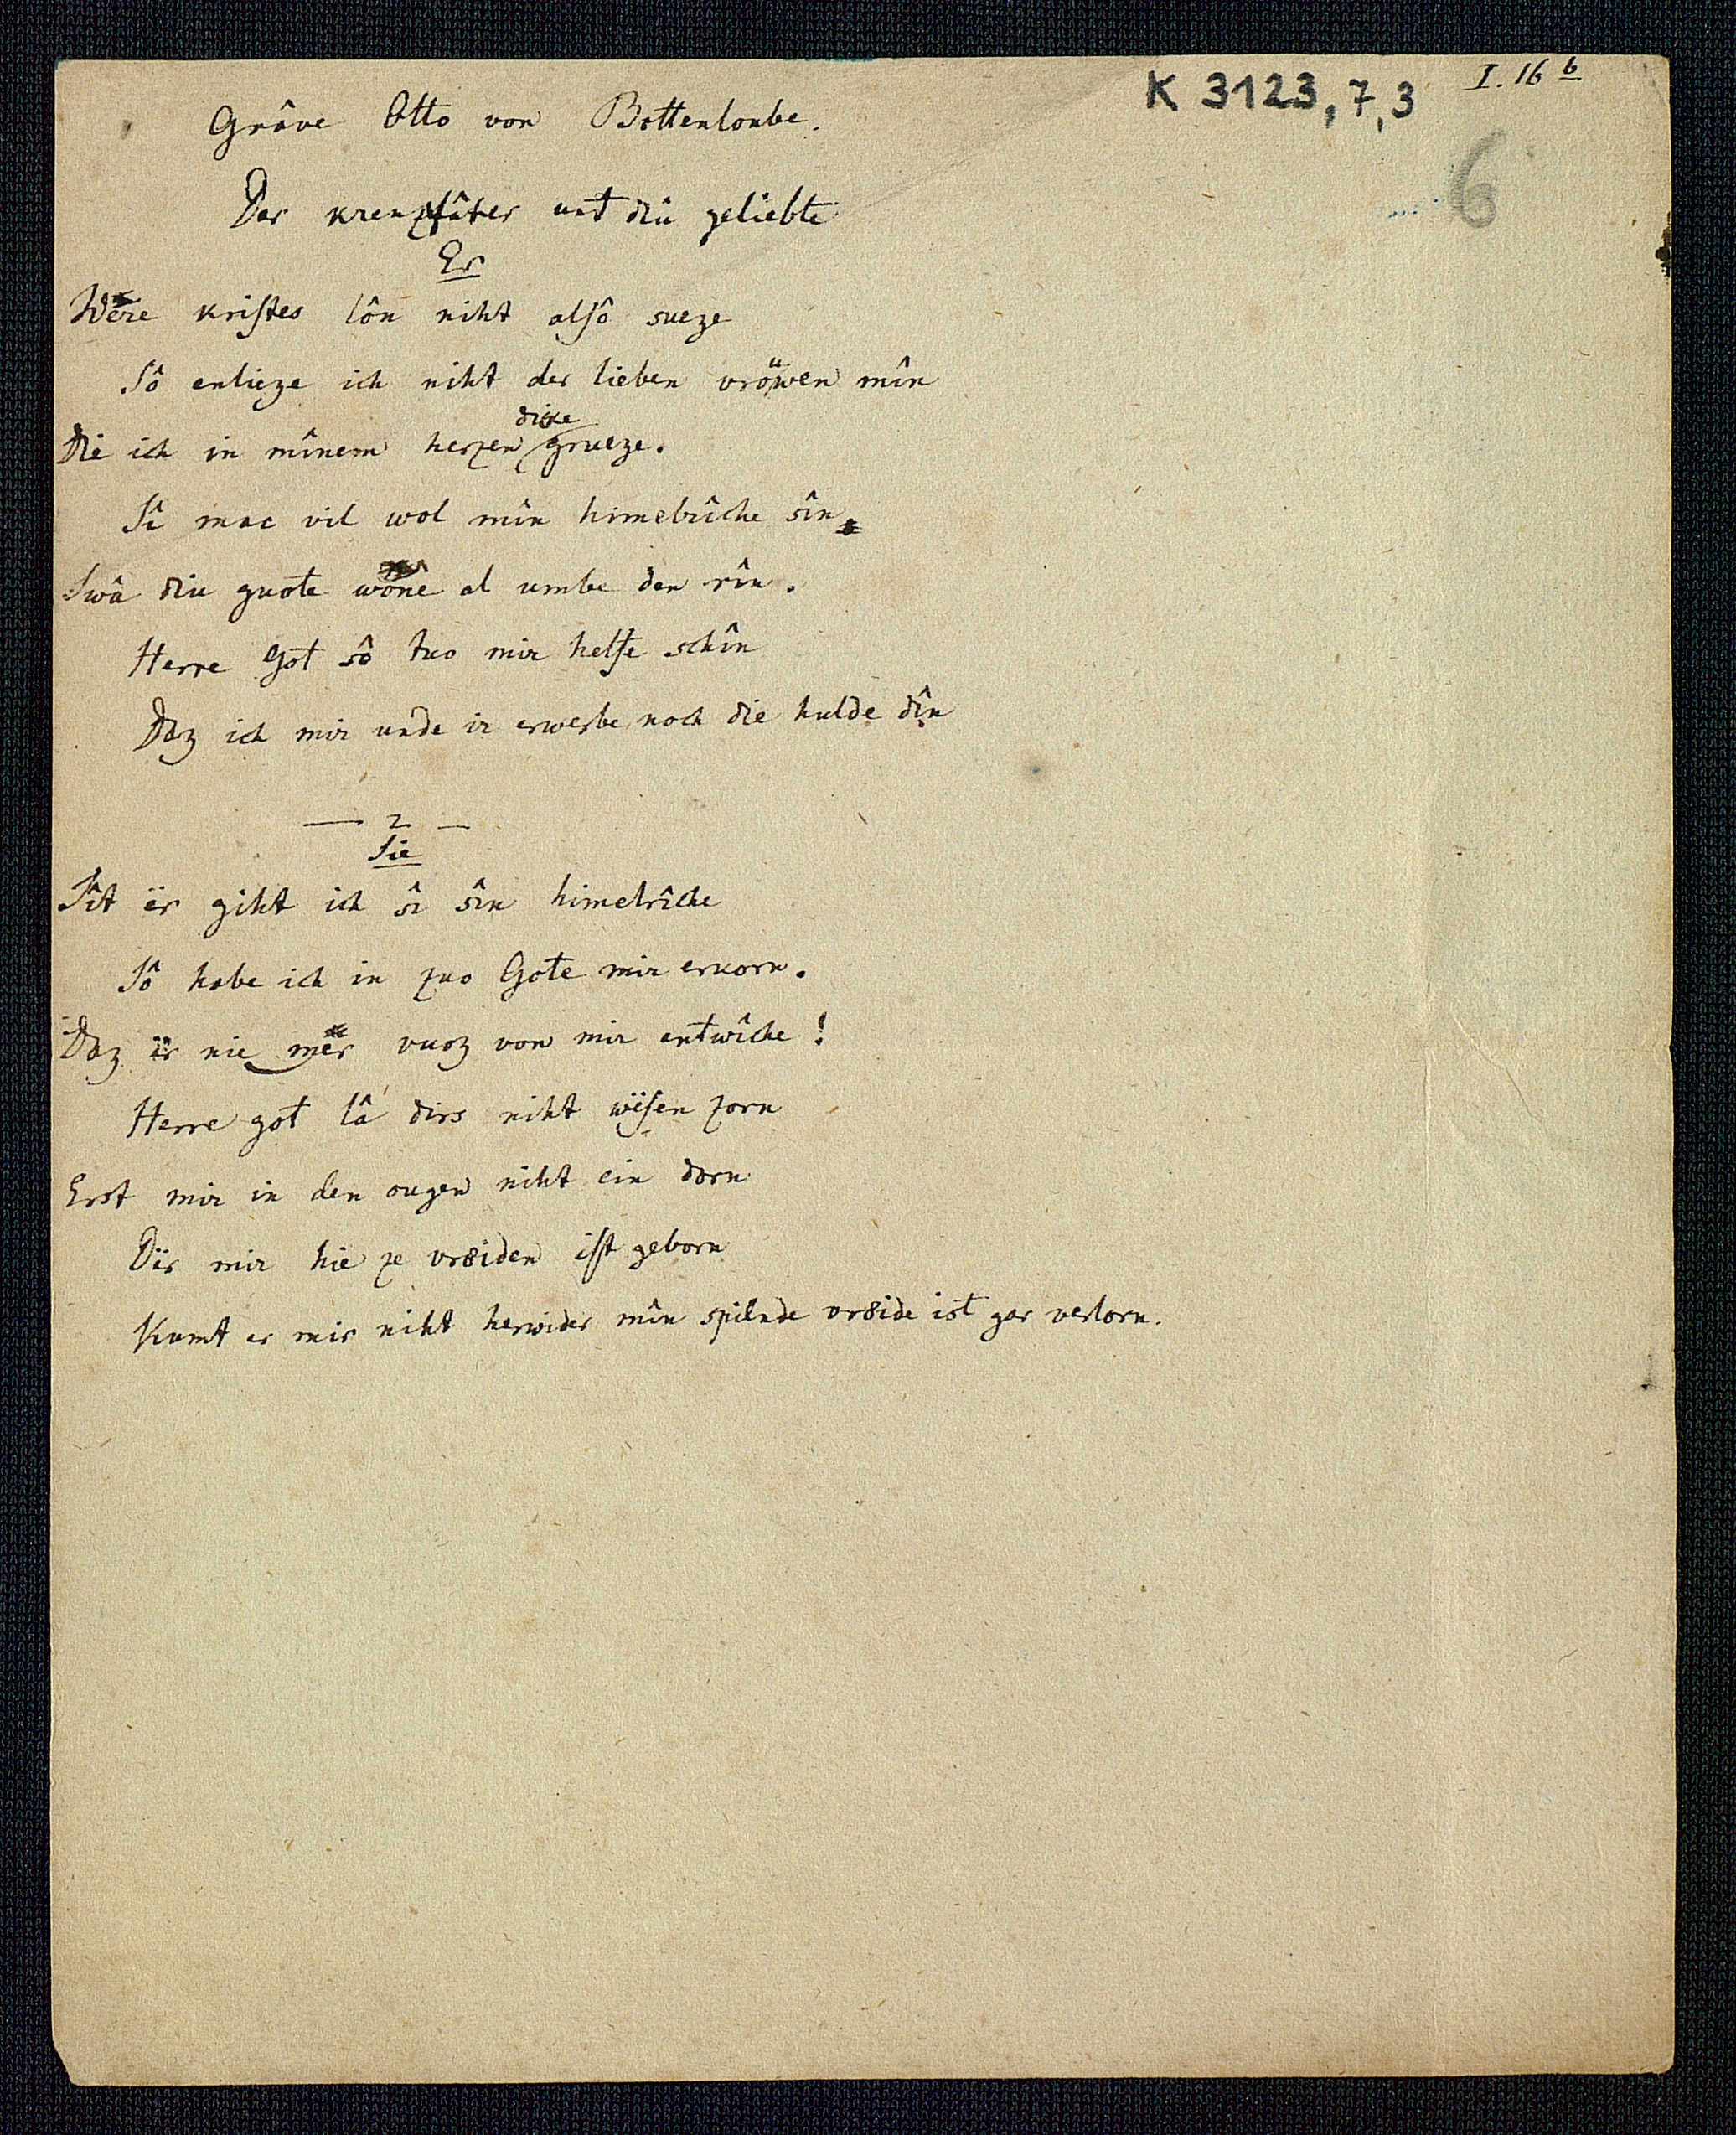 K 3123,7,3 I. 16 b
6
Grâve Otto von Bottenloube.
Der kreuzfârer unt diu geliebte
Er
Wëre kristes lôn niht alsô sueze
Sô enlieze ich niht der lieben vröuwen mîn
dike
Die ich in mînem herzen grueze.
Sî mac vil wol mîn himelrîche sîn
Swâ diu guote wone al umbe den rîn.
Herre Got sô tuo mir helfe schîn
Daz ich mir unde ir erwerbe noch die hulde dîn
— 2 —
Sie
Sît ër giht ich sî sîn himelrîche
Sô habe ich in zuo Gote mir erkorn.
Daz ër nie mër vuoz von mir entwîche!
Herre got lâ dirs niht wësen zorn
Erst mir in den ougen niht ein dorn
Dër mir hie ze vröiden ist geborn
Kumt er mir niht herwider mîn spilnde vröide ist gar verlorn.